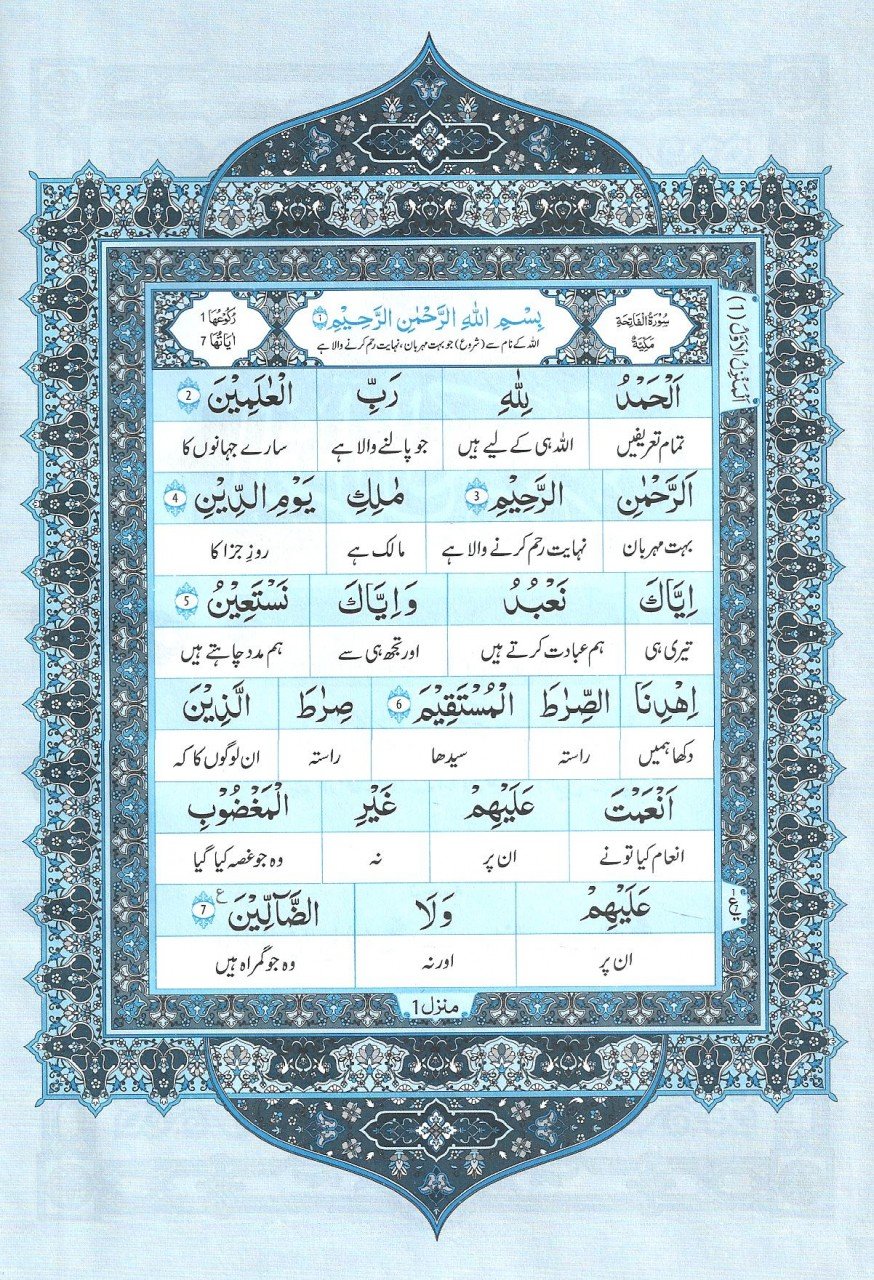 سُوْرَةُ الْفَاتِحَةِ
مَكِّيَّةٌ
بِسْمِ اللهِ الرَّحْمٰنِ الرَّحِيْمِ 1
اللہ کے نام سے (شروع) جو بہت مہربان، نہایت رحم کرنے والا ہے
رُكُوْعُهَا 1
اٰيَاتُهَا 7
اَلْمَنْزِلُ الْاَوَّلُ (1)
اَلْحَمْدُ لِلّٰهِ رَبِّ الْعٰلَمِيْنَ 2
تمام تعریفیں اللہ ہی کے لیے ہیں جو پالنے والا ہے سارے جہانوں کا
الرَّحْمٰنِ الرَّحِيْمِ 3 مٰلِكِ يَوْمِ الدِّيْنِ 4
بہت مہربان نہایت رحم کرنے والا ہے مالک ہے روزِ جزا کا
اِيَّاكَ نَعْبُدُ وَاِيَّاكَ نَسْتَعِيْنُ 5
تیری ہی ہم عبادت کرتے ہیں اور تجھ ہی سے ہم مدد چاہتے ہیں
اِهْدِنَا الصِّرٰطَ الْمُسْتَقِيْمَ 6 صِرٰطَ الَّذِيْنَ
دکھا ہمیں راستہ سیدھا راستہ ان لوگوں کا کہ
اَنْعَمْتَ عَلَيْهِمْ غَيْرِ الْمَغْضُوْبِ
انعام کیا تونے ان پر نہ وہ جو غصہ کیا گیا
عَلَيْهِمْ وَلَا الضَّآلِّيْنَ ع 7
ان پر اور نہ وہ جو گمراہ ہیں
منزل 1